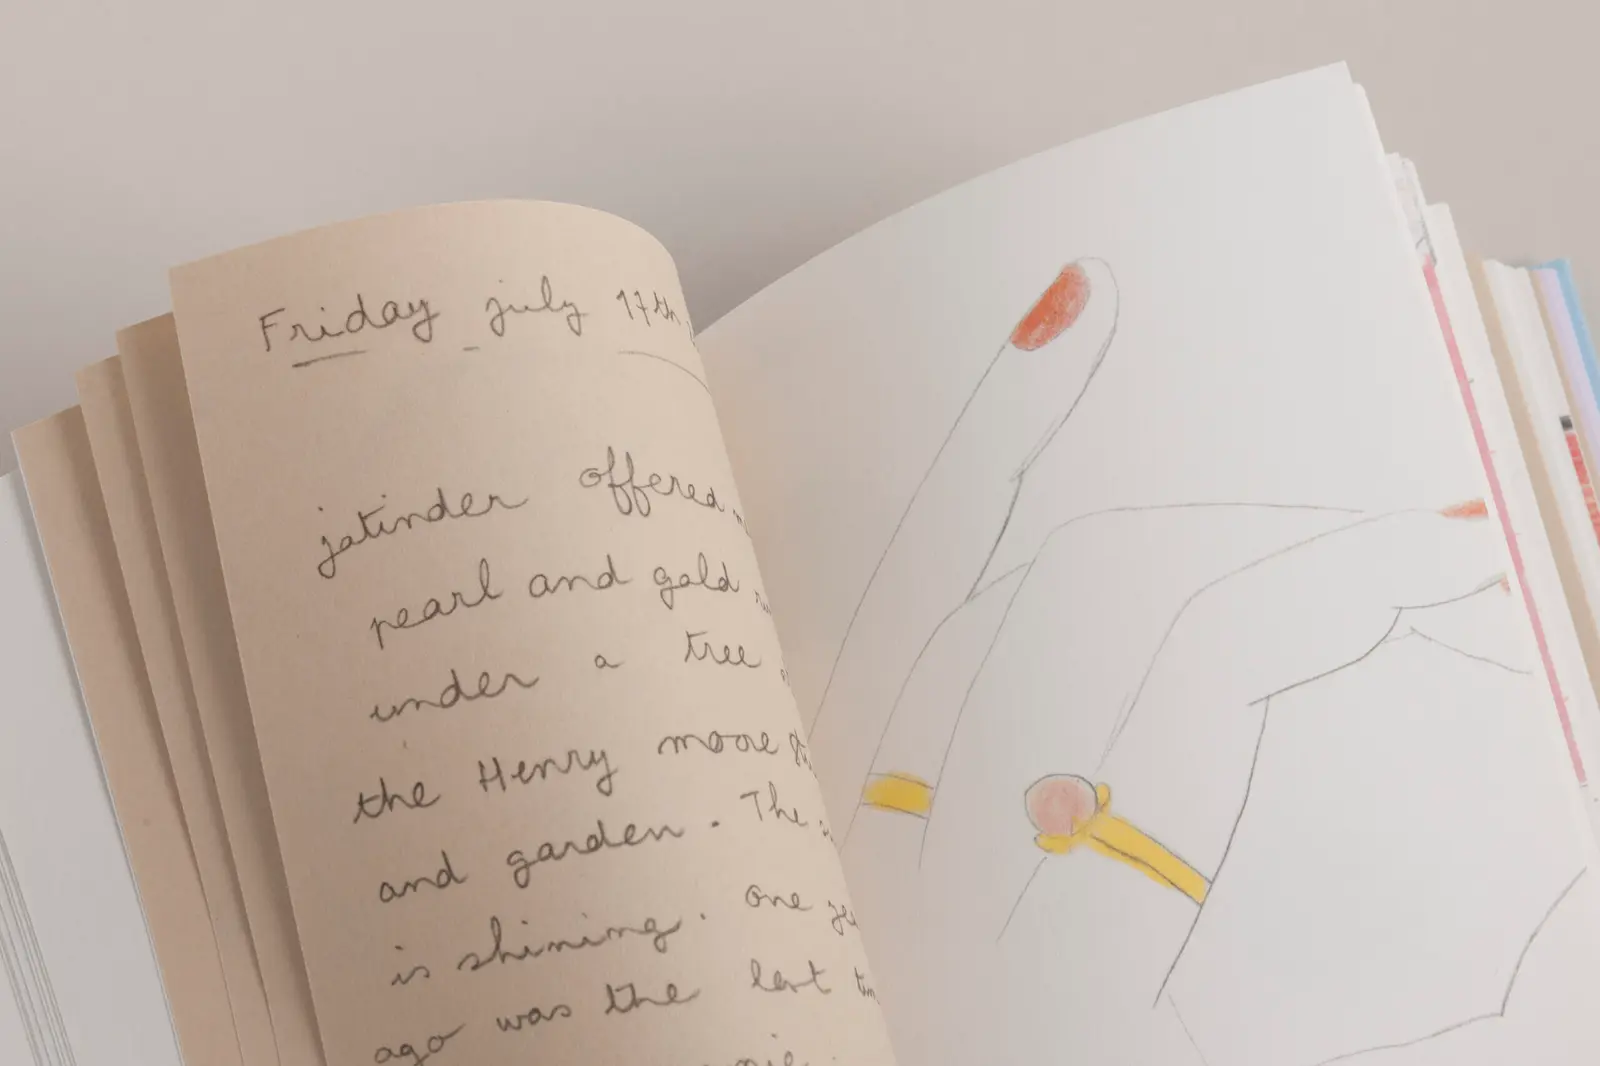 Friday july 17th
jatinder offered
pearl and gold
under a tree
the Henry moore
and garden. The
is shining. one
ago was the last